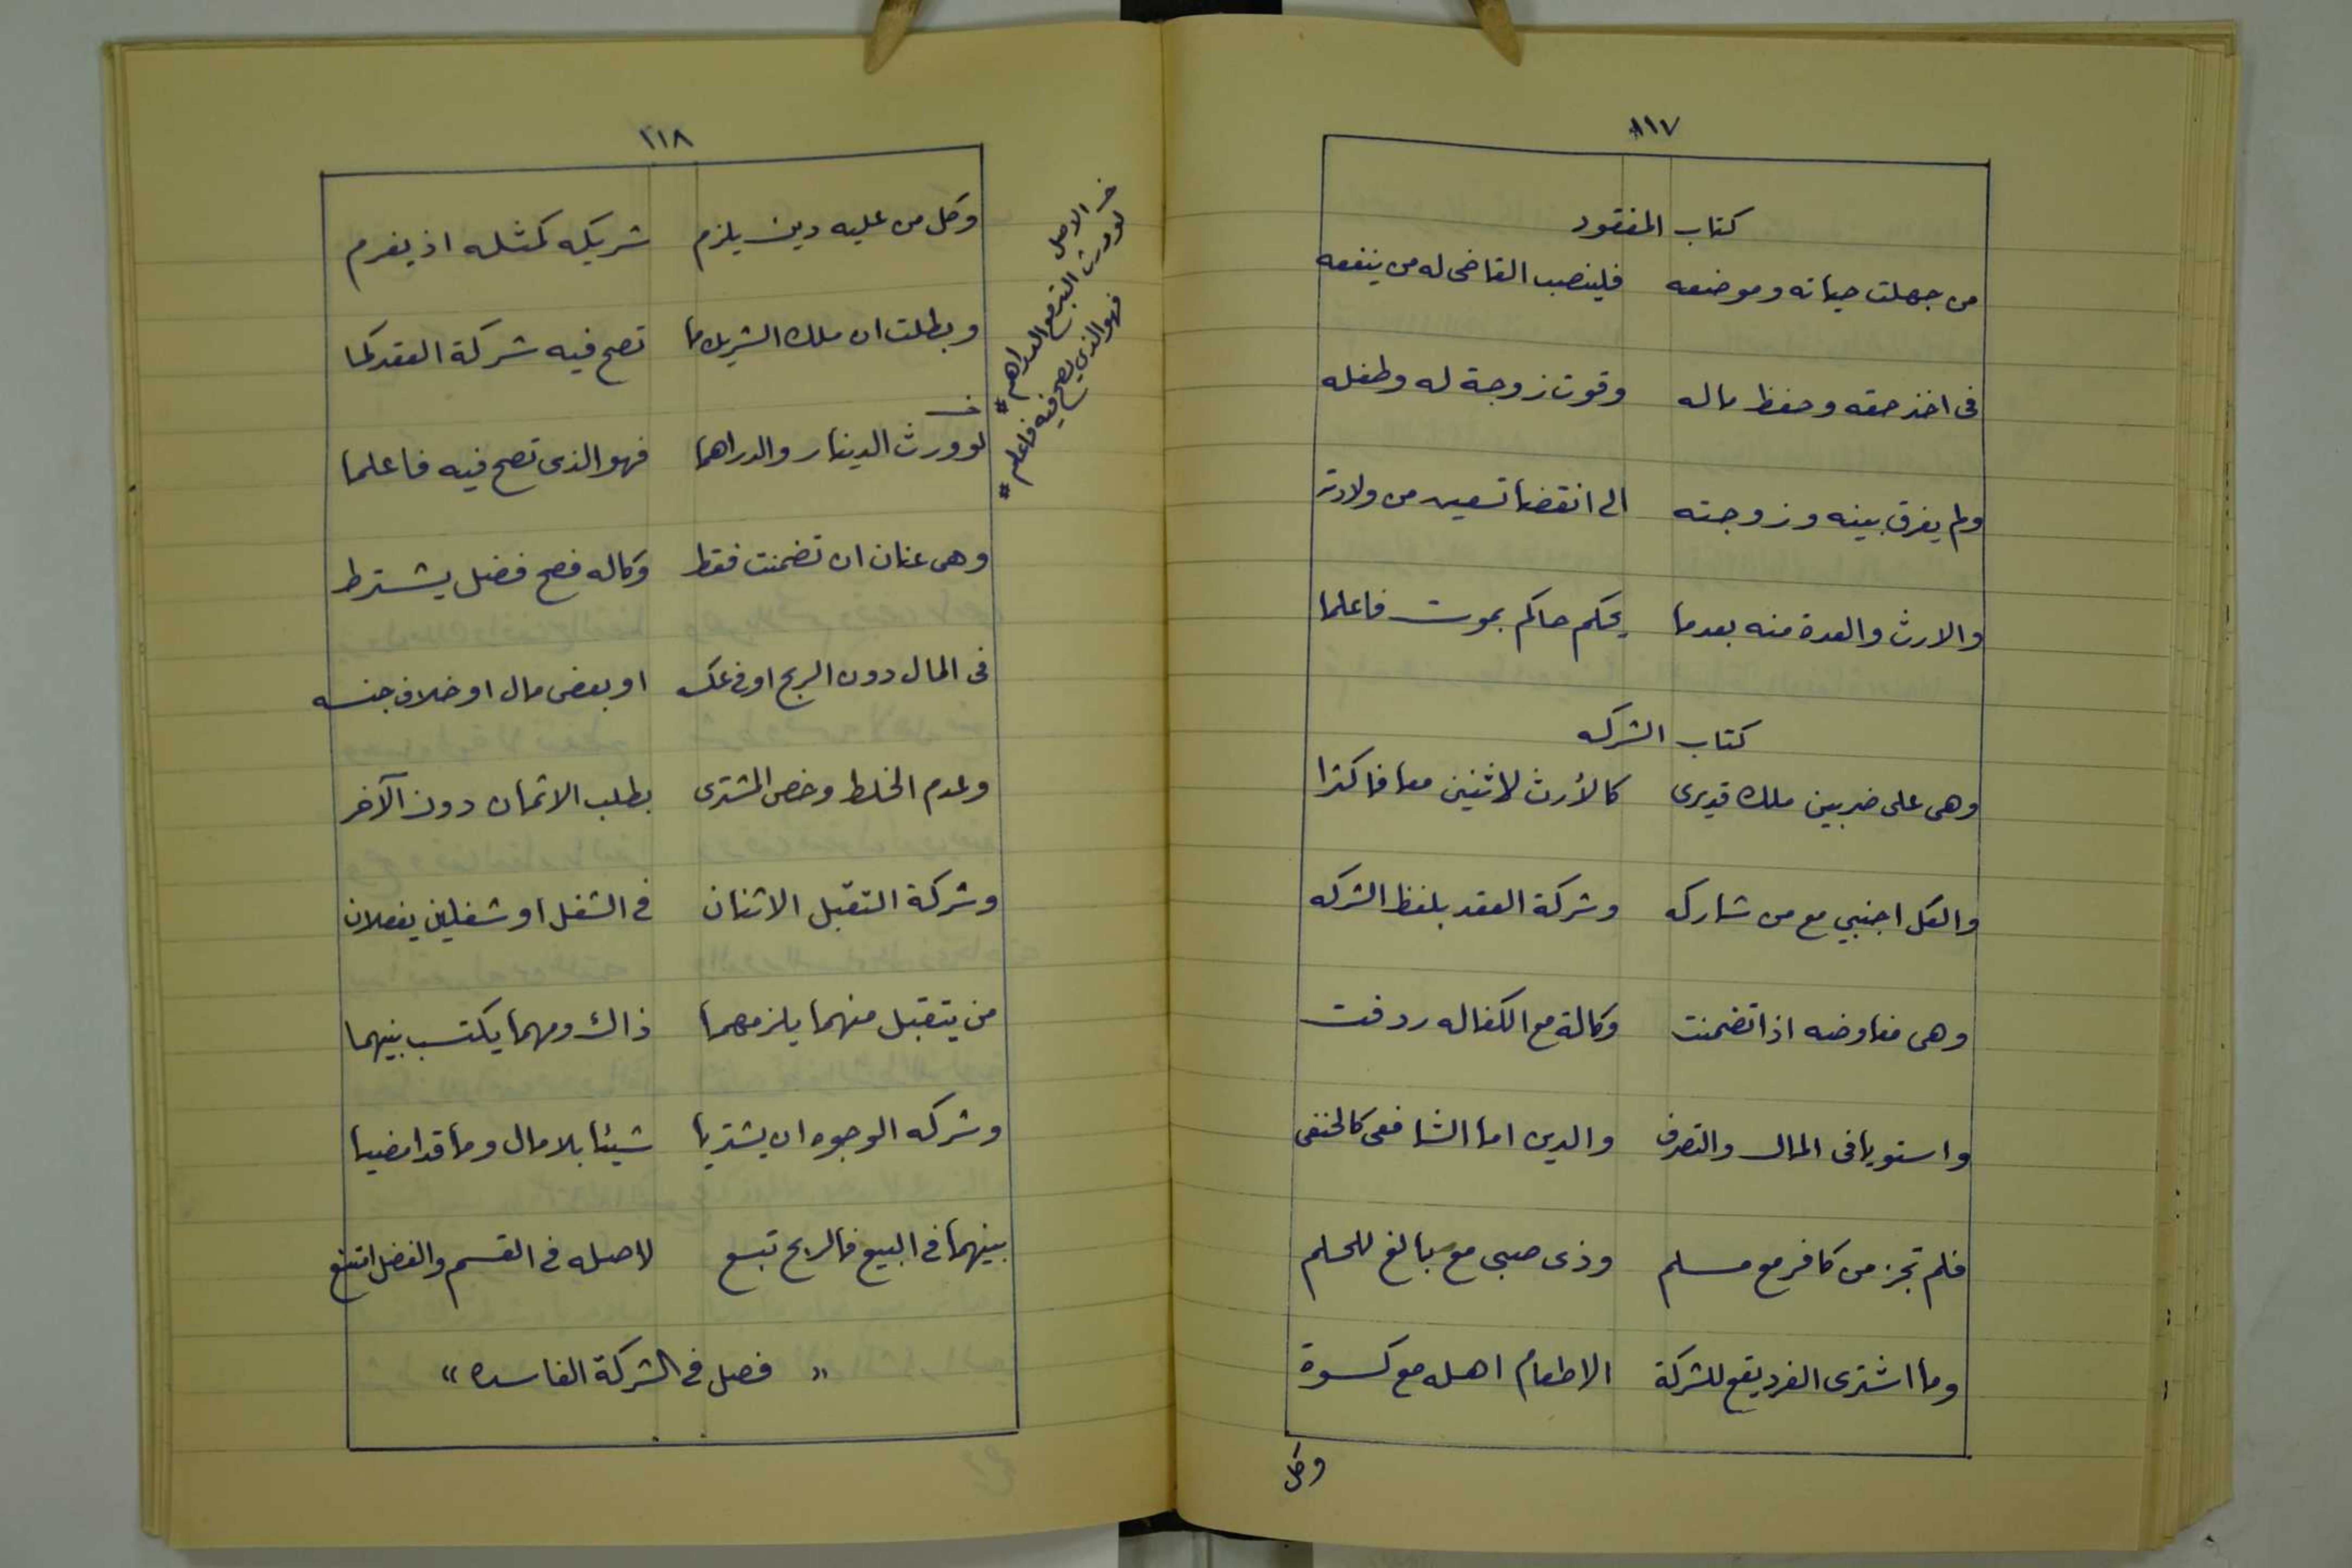 ١١٧
كتاب المفقود
من جهلت حياته وموضعه فلينصب القاضى له من ينفعه
فى اخذ حقه وحفظ ماله وقوت زوجة له وطفله
ولم يفرق بينه وزوجته الى انقضا تسعين من ولادته
والارث والعدة منه بعدما يحكم حاكم بموت فاعلما
كتاب الشركه
وهى على ضربين ملك قديرى كالأرث لاثنين معا فاكثرا
والكل اجنبي مع من شاركه وشركة العقد بلفظ الشركه
وهى مفاوضه اذا تضمنت وكالة مع الكفاله ردفت
واستويا فى المال والتصرف والدين اما الشافعى كالحنفى
فلم تجز من كافر مع مسلم وذى صبى مع بالغ للحلم
وما اشترى الفرد يقع للشركة الا طعام اهله مع كسوة
وكل
١١٨
وكل من عليه دين يلزم شريكه كمثله اذ يغرم
وبطلت ان ملك الشريك ما تصح فيه شركة العقد كما
لو ورث الدينار والدراهما فهو الذى تصح فيه فاعلما
وهى عنان ان تضمنت فقط وكاله فصح فضل يشترط
فى المال دون الربح او فى عكسه او بعض مال او خلاف جنسه
وعدم الخلط وخص المشترى بطلب الاثمان دون الآخر
وشركة التقبّل الاثنان فى الشغل او شغلين يفعلان
من يتقبل منهما يلزمهما ذاك ومهما يكتسب بينهما
وشركه الوجوه ان يشتريا شيئا بلا مال وما قد امضيا
بينهما فى البيع فالربح تبع لاصله فى القسم والفضل امتنع
" فصل فى الشركة الفاسده "
خـ الاصل
لو ورث التبر مع الدراهم #
فهو الذي يصح فيه فاعلم #